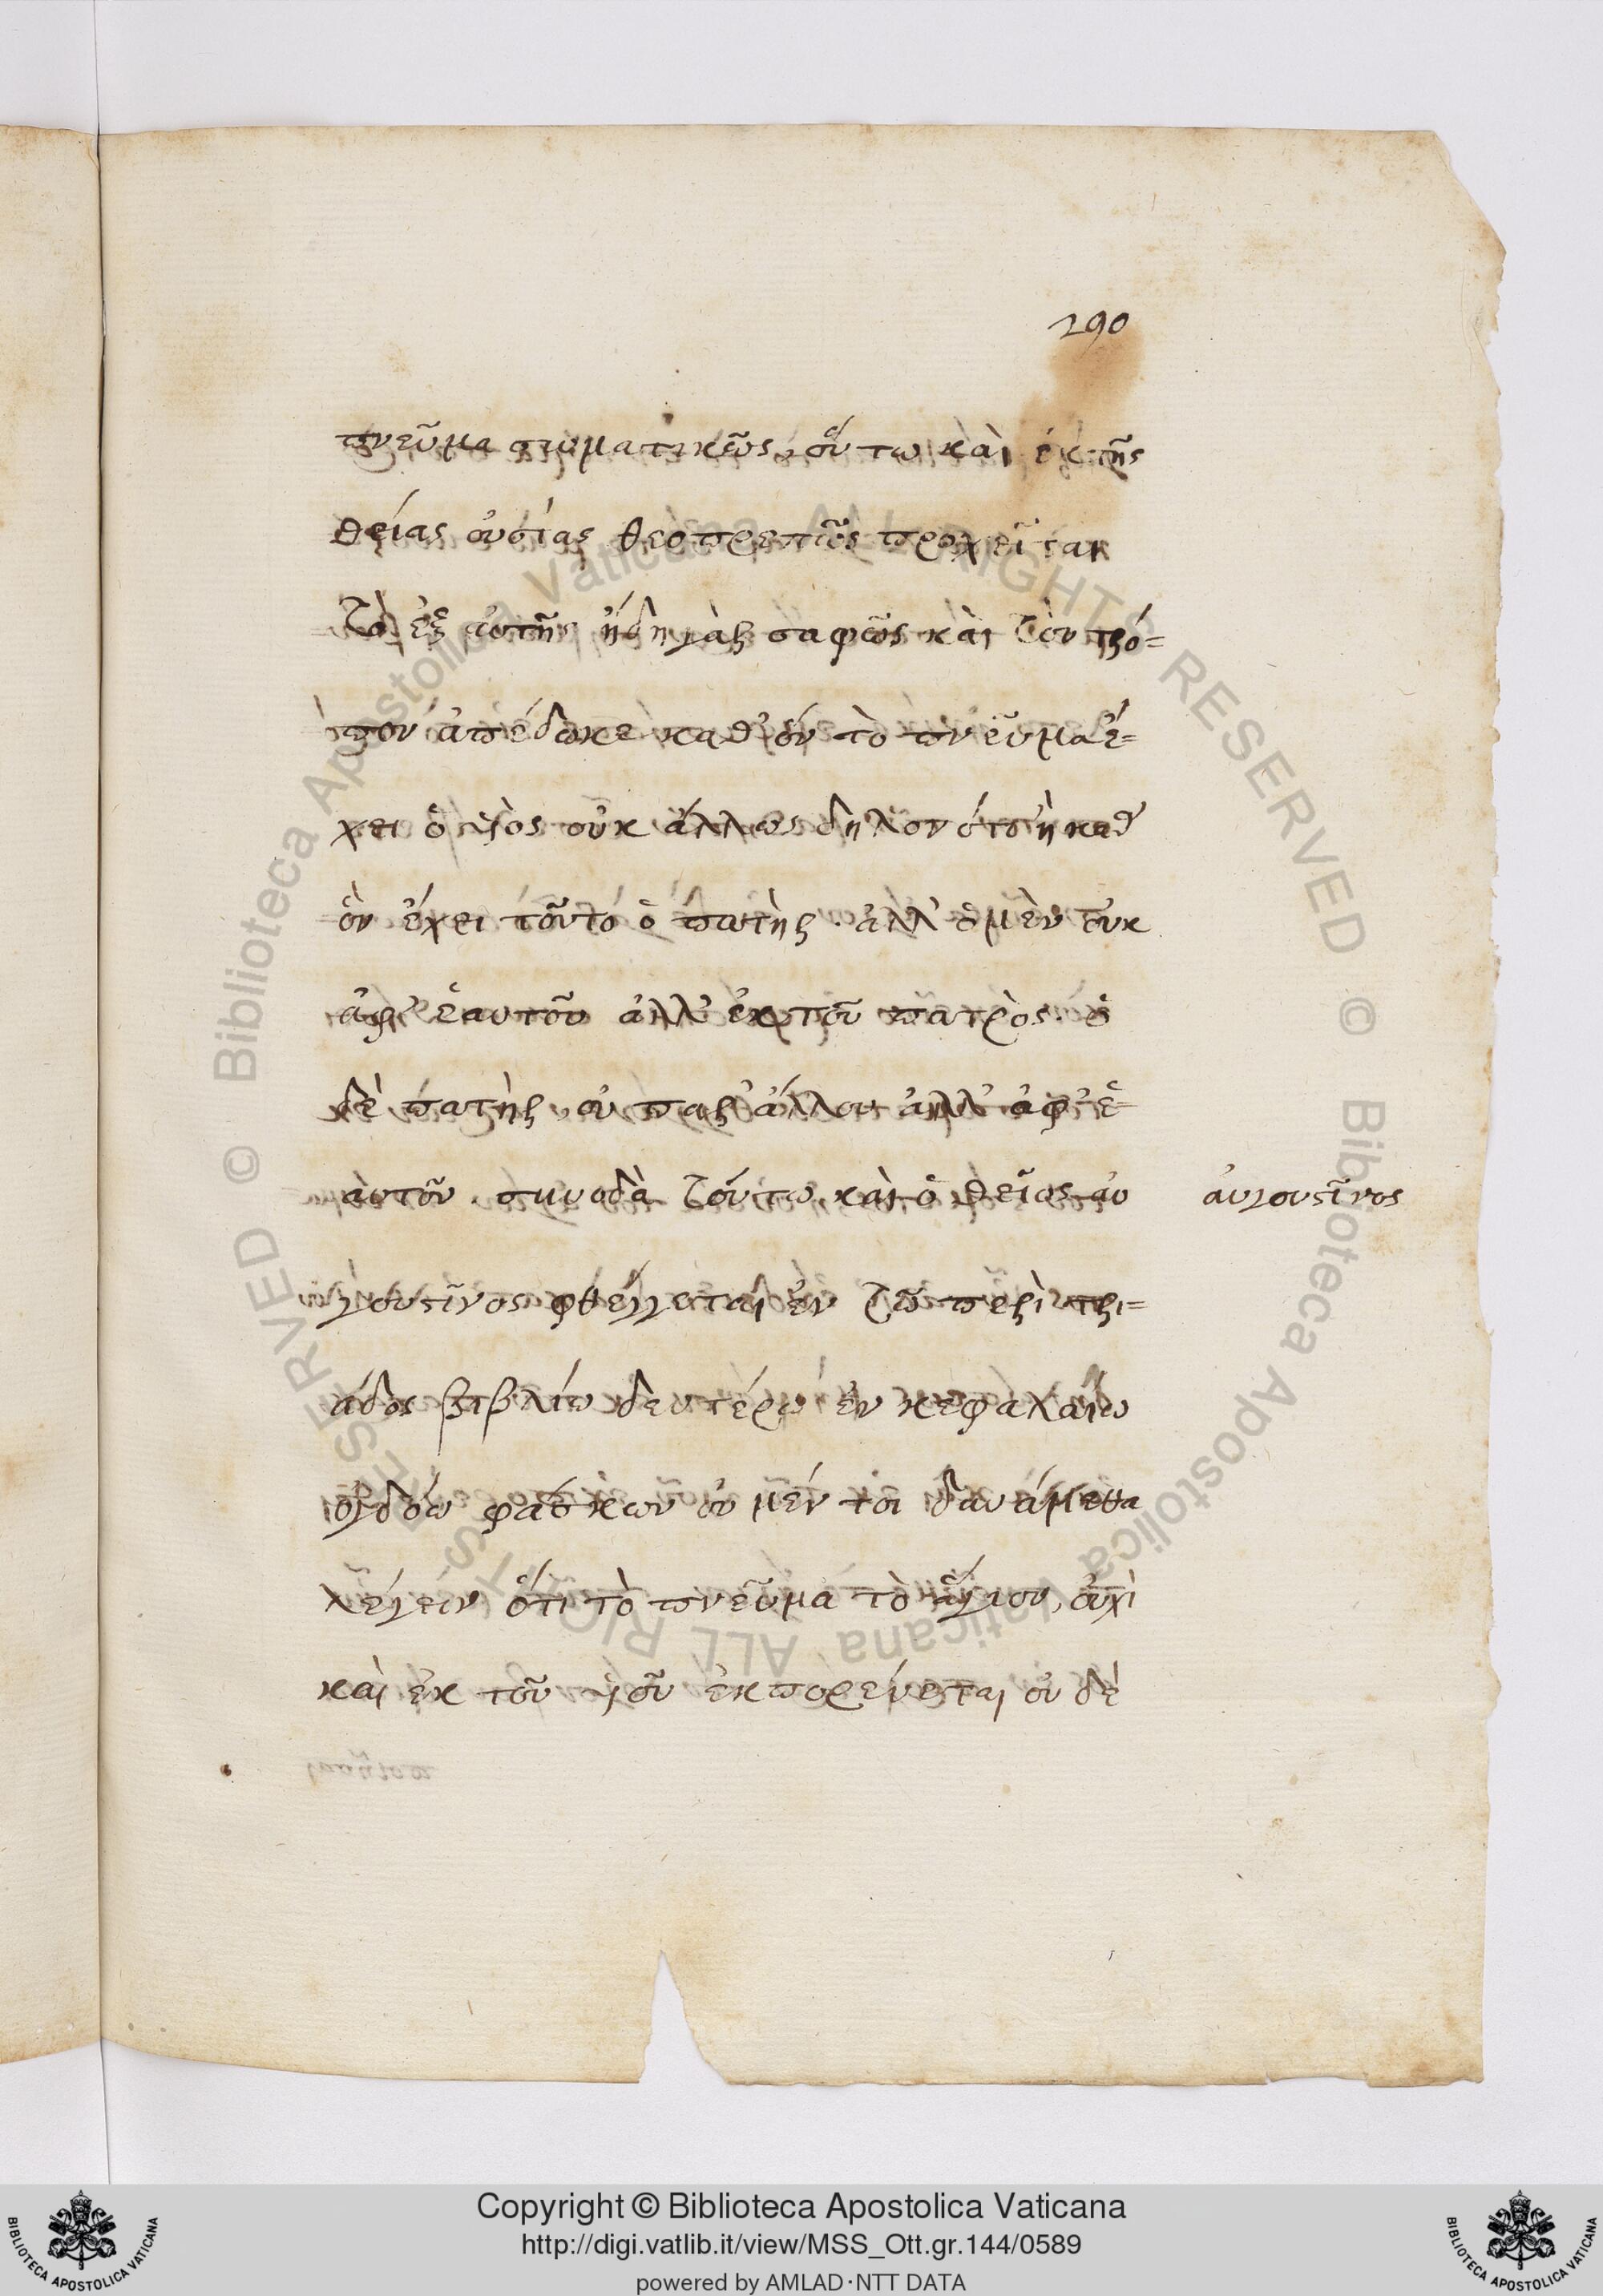 290
πνεῦμα σωματικῶς, οὕτω καὶ ἐκ τῆς
θείας οὐσίας θεοπρεπῶς προχεῖται
τὸ ἐξ αὐτῆς ἤδη γὰρ σαφῶς καὶ τὸν τρό=
πον ἀπέδωκε καθ' ὃν τὸ πνεῦμα ἔ=
χει ὁ υἱὸς οὐκ ἄλλως δηλονότι ἢ καθ'
ὃν ἔχει τοῦτο ὁ πατὴρ. ἀλλ' ὁ μὲν οὐκ
ἀφ' ἑαυτοῦ ἀλλ' ἐκ τοῦ πατρὸς. ὁ
δὲ πατὴρ, οὐ παρ' ἄλλου ἀλλ' ἀφ' ἑ=
αὐτοῦ. συνῳδὰ τούτῳ καὶ ὁ θεῖος αὐ
αὐγουστῖνος
γουστῖνος φθέγγεται ἐν τῶ περὶ τρι=
άδος βιβλίω δευτέρω ἐν κεφαλαίω
ὀγδόω φάσκων οὐ μέν τοι δυνάμεθα
λέγειν ὅτι τὸ πνεῦμα τὸ ἅγιον, οὐχὶ
καὶ ἐκ τοῦ υἱοῦ ἐκπορεύεται οὐδὲ
© Biblioteca Apostolica Vaticana ALL RIGHTS RESERVED © Biblioteca Apostolica Vaticana ALL RIGHTS RESERVED
Copyright © Biblioteca Apostolica Vaticana
http://digi.vatlib.it/view/MSS_Ott.gr.144/0589
powered by AMLAD·NTT DATA
BIBLIOTECA APOSTOLICA VATICANA
BIBLIOTECA APOSTOLICA VATICANA